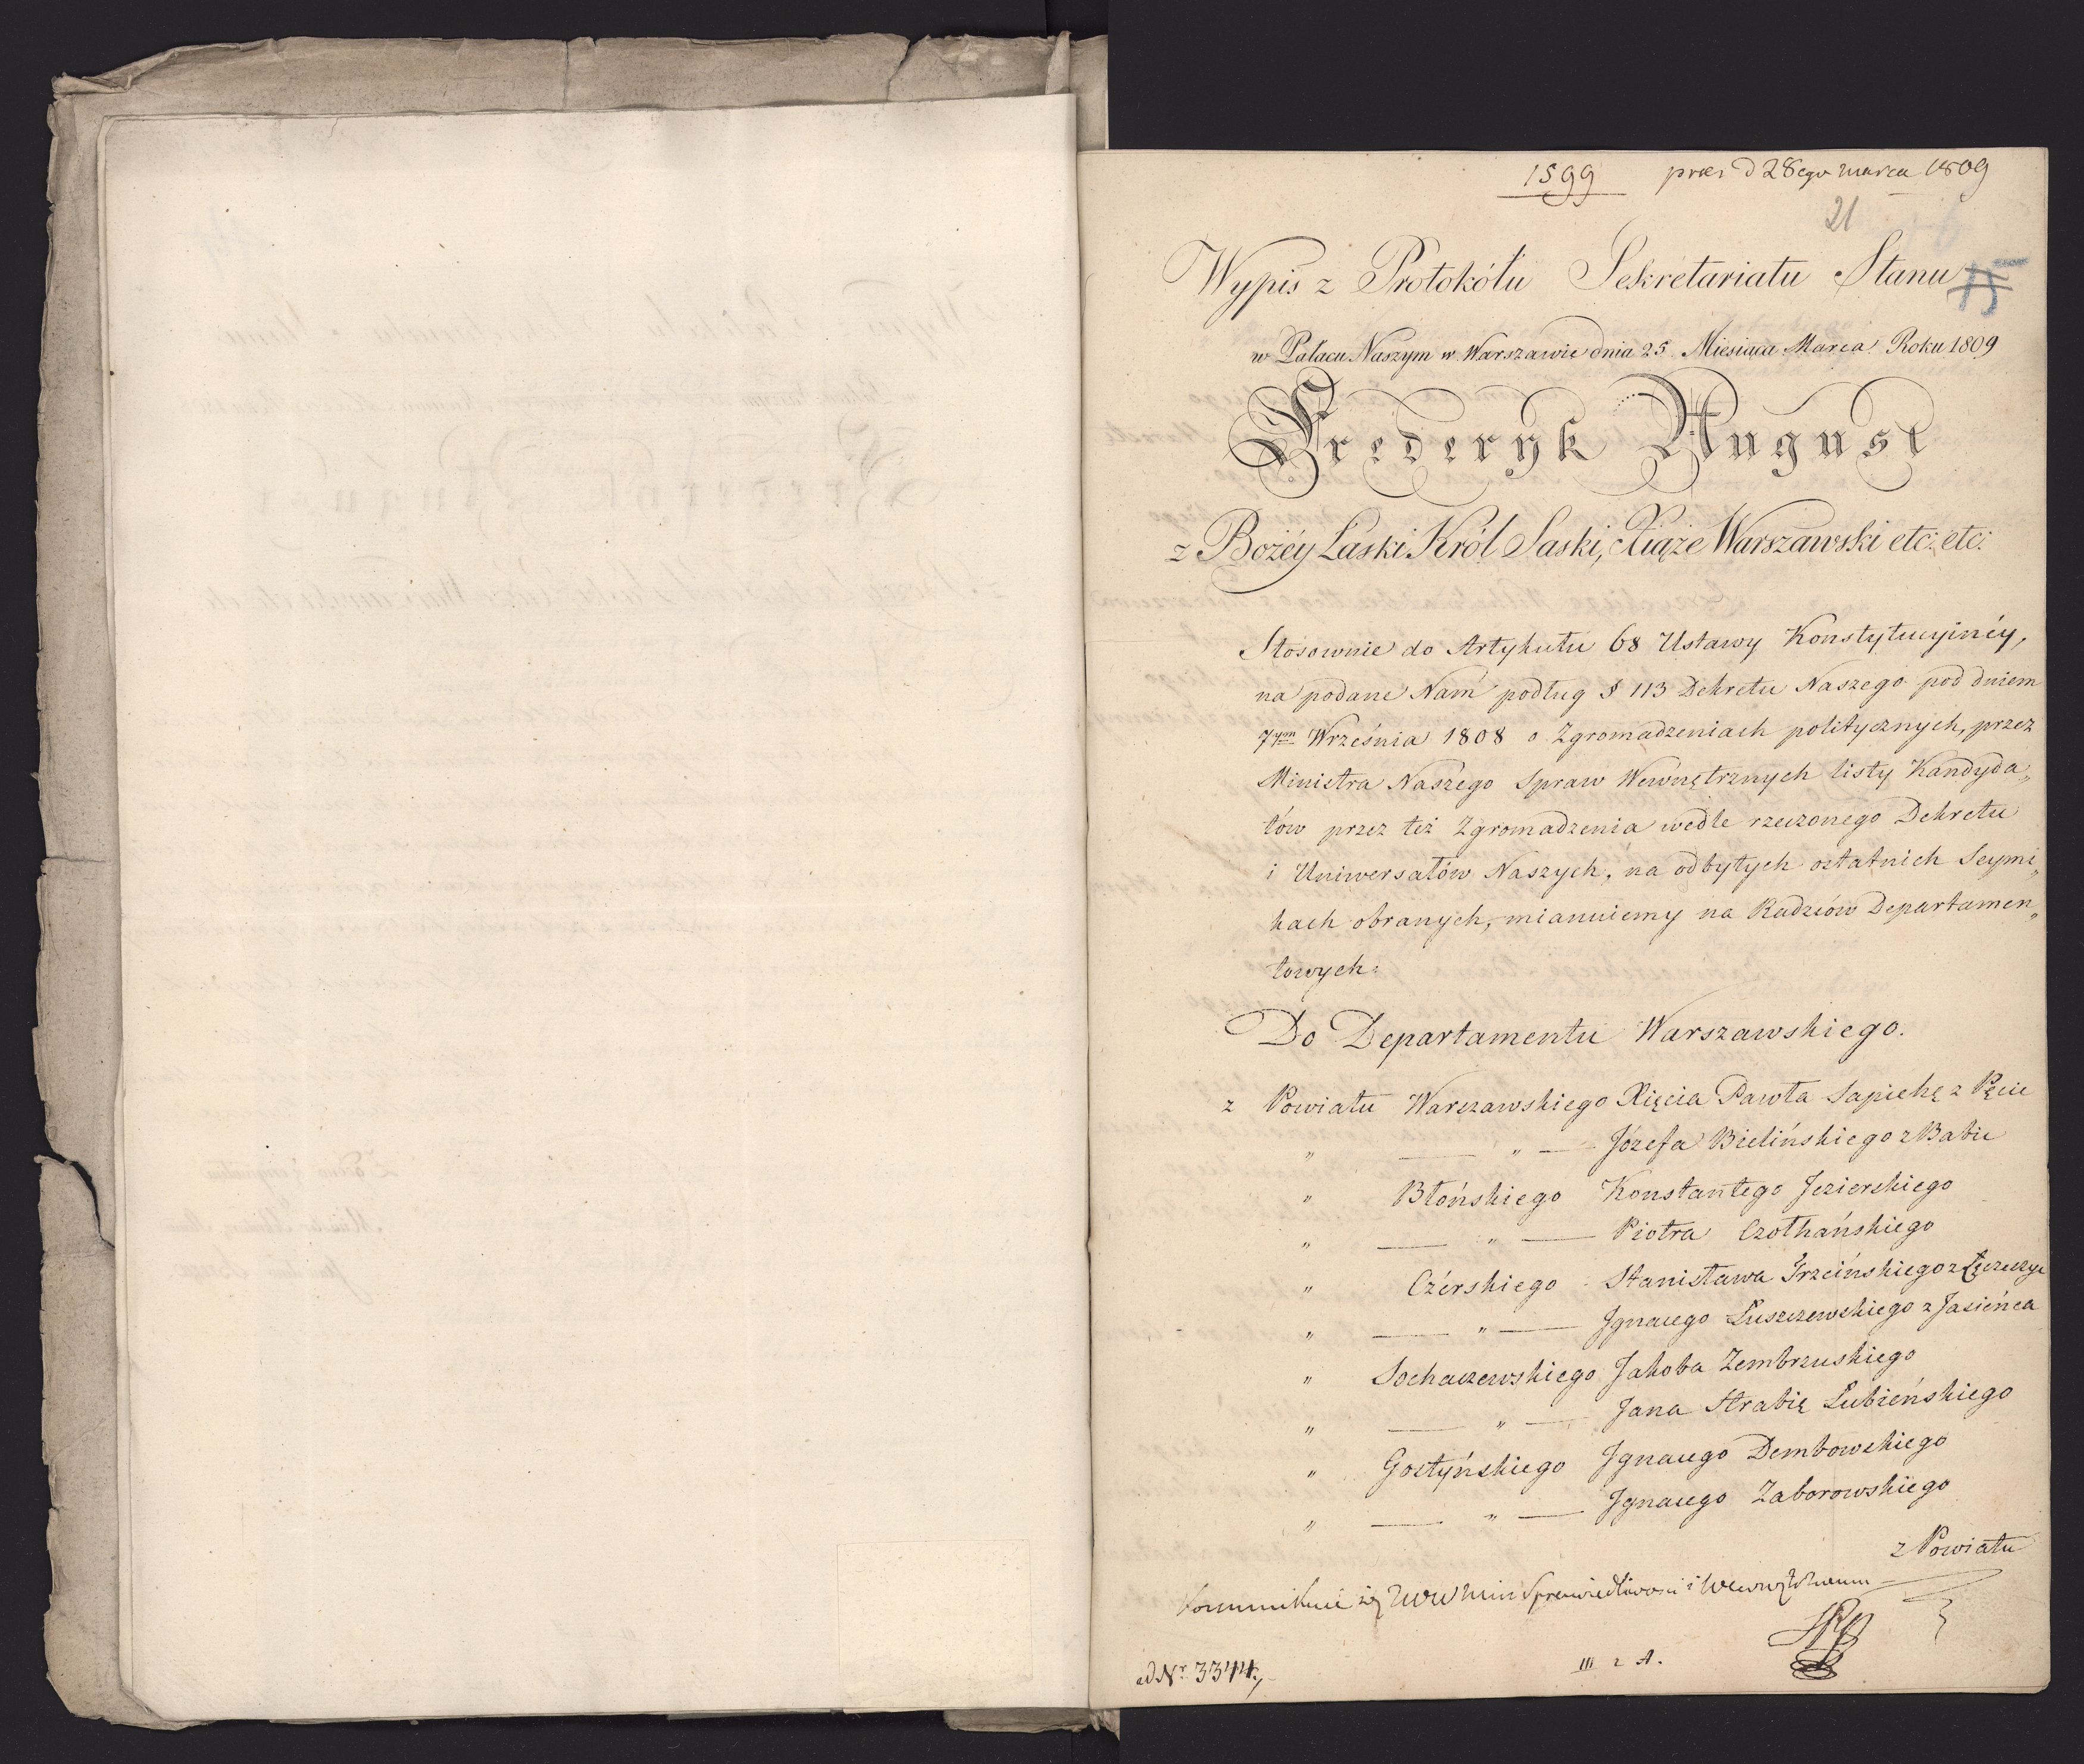 1599 praes d 28ego marca 1809
21
Wypis z Protokółu Sekretariatu Stanu 15
w Pałacu Naszym w Warszawie dnia 25. Miesiąca Marca Roku 1809
Frederyk August
z Bożéy Łaski Król Saski, Xiąże Warszawski etc: etc:
Stosownie do Artykułu 68 Ustawy Konstytucyinéy,
na podane Nam podług § 113 Dekretu Naszego pod dniem
7ym Września 1808 o Zgromadzeniach politycznych, przez
Ministra Naszego Spraw Wewnętrznych listy Kandyda„
tów przez też Zgromadzenia wedle rzeczonego Dekretu
i Uniwersałów Naszych, na odbytych ostatnich Seymi„
kach obranych, mianuiemy na Radzców Departamen„
towych:
Do Departamentu Warszawskiego.
z Powiatu Warszawskiego Xięcia Pawła Sapiehę z Pęcic
„ — „ — Józefa Bielińskiego z Babic
„ Błońskiego Konstantego Jezierskiego
„ — „ — Piotra Czołhańskiego
„ Czérskiego Stanisława Trzcińskiego z
„ — „ — Ignacego Łuszczewskiego z Jasieńca
„ Sochaczewskiego Jakoba Zembrzuskiego
„ — „ — Jana Hrabię Łubieńskiego
„ Gostyńskiego Ignacego Dembowskiego
„ — „ — Ignacego Zaborowskiego
z Powiatu
kommunikuie się Min Sprawiedliwosci i Wewnętrznemu
ad Nr 3344.
III 2 A.